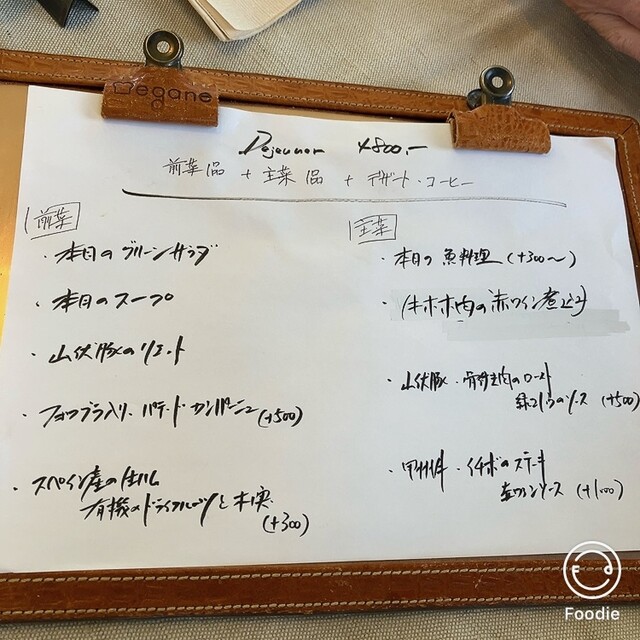 egane
Dejeuner ¥800.-
前菜1品 + 主菜1品 + デザート・コーヒー
前菜
・本日のグリーンサラダ
・本日のスープ
・山伏豚のリエット
・フォアグラ入り パテ・ド・カンパーニュ (+500)
・スペイン産の生ハム
有機のドライフルーツと木実
(+300)
主菜
・本日の 魚料理 (+300〜)
・牛ホホ肉の赤ワイン煮込み
・山伏豚・骨付肉のロースト
のソース (+500)
・甲州牛・イチボのステーキ
赤ワインソース
Foodie